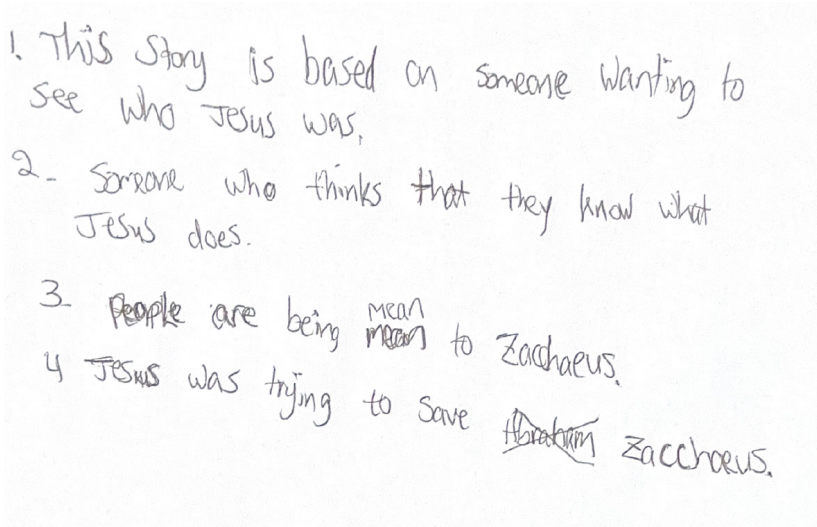 1. This story is based on someone wanting to
see who Jesus was.
2- Someone who thinks that they know what
Jesus does.
mean
3- People are being mean to Zacchaeus.
4 Jesus was trying to save Abraham Zacchaeus.